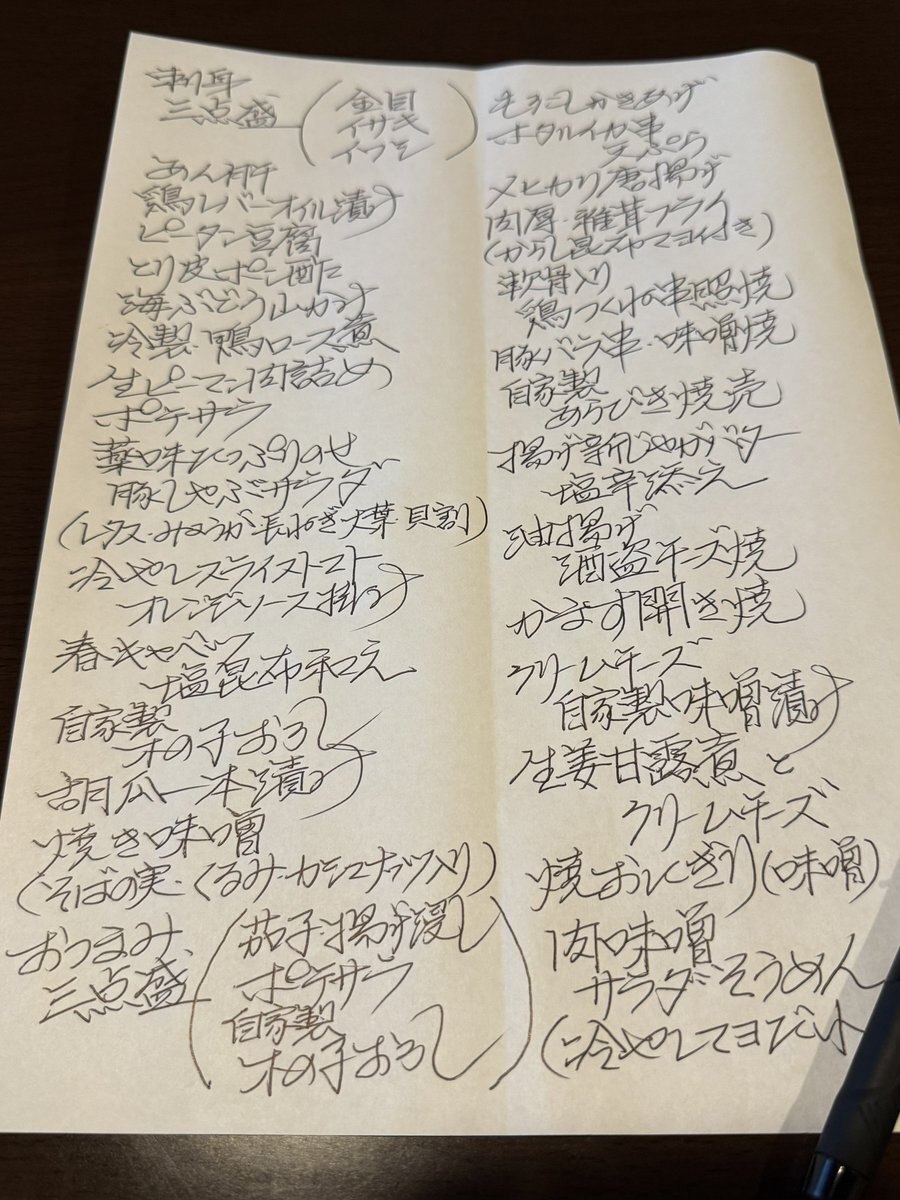 刺身
三点盛
(金目
イサキ
イワシ)
あん肝
鶏レバーオイル漬け
ピータン豆腐
とり皮ポン酢
海ぶどう山かけ
冷製・鴨ロース煮
生ピーマン肉詰め
ポテサラ
薬味たっぷりのせ
豚しゃぶサラダ
(レタス・みょうが・長ねぎ・大葉・貝割)
冷やしスライストマト
オレンジソース掛け
春キャベツ
塩昆布和え
自家製
木の子おろし
胡瓜一本漬け
焼き味噌
(そばの実・くるみ・カシューナッツ入り)
おつまみ
三点盛
(茄子揚げ浸し
ポテサラ
自家製
木の子おろし)
もろこしかきあげ
ホタルイカ串
天ぷら
メヒカリ唐揚げ
肉厚・椎茸フライ
(からし昆布マヨ付き)
軟骨入り
鶏つくねの串照焼
豚バラ串・味噌焼
自家製
あらびき焼売
揚げ新じゃがバター
塩辛添え
油揚げ
酒盗チーズ焼
かます開き焼
クリームチーズ
自家製味噌漬け
生姜甘露煮と
クリームチーズ
焼おにぎり(味噌)
肉味噌
サラダそうめん
(冷やしてヨビット